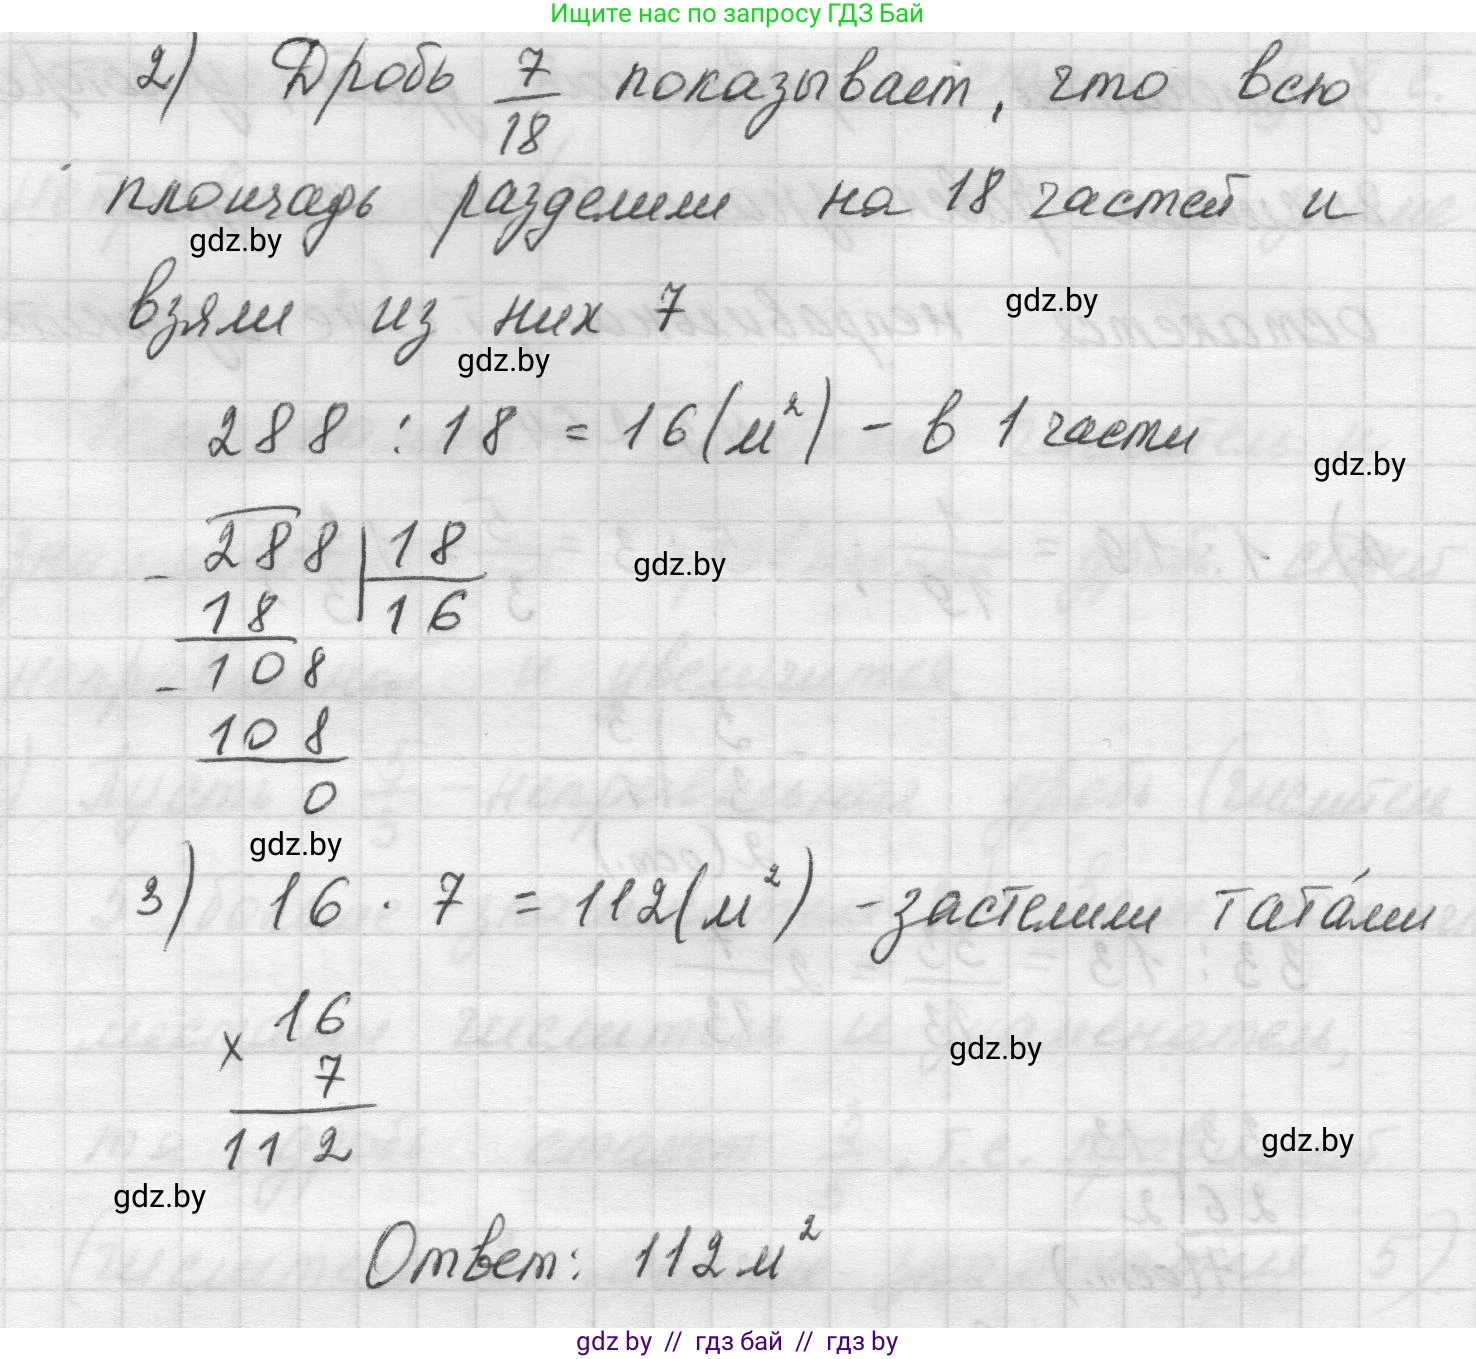 Ищите нас по запросу ГДЗ Бай
2) Дробь 7/18 показывает, что всю
площадь разделили на 18 частей и
gdz.by
взяли из них 7
gdz.by
gdz.by
288 : 18 = 16 (м²) - в 1 части
gdz.by
- 288 | 18
gdz.by
18 16
- 108
108
0
gdz.by
3) 16 · 7 = 112 (м²) - застелили тата́ми
× 16
gdz.by
7
112
gdz.by
gdz.by
Ответ: 112 м²
gdz by // гдз бай // гдз by